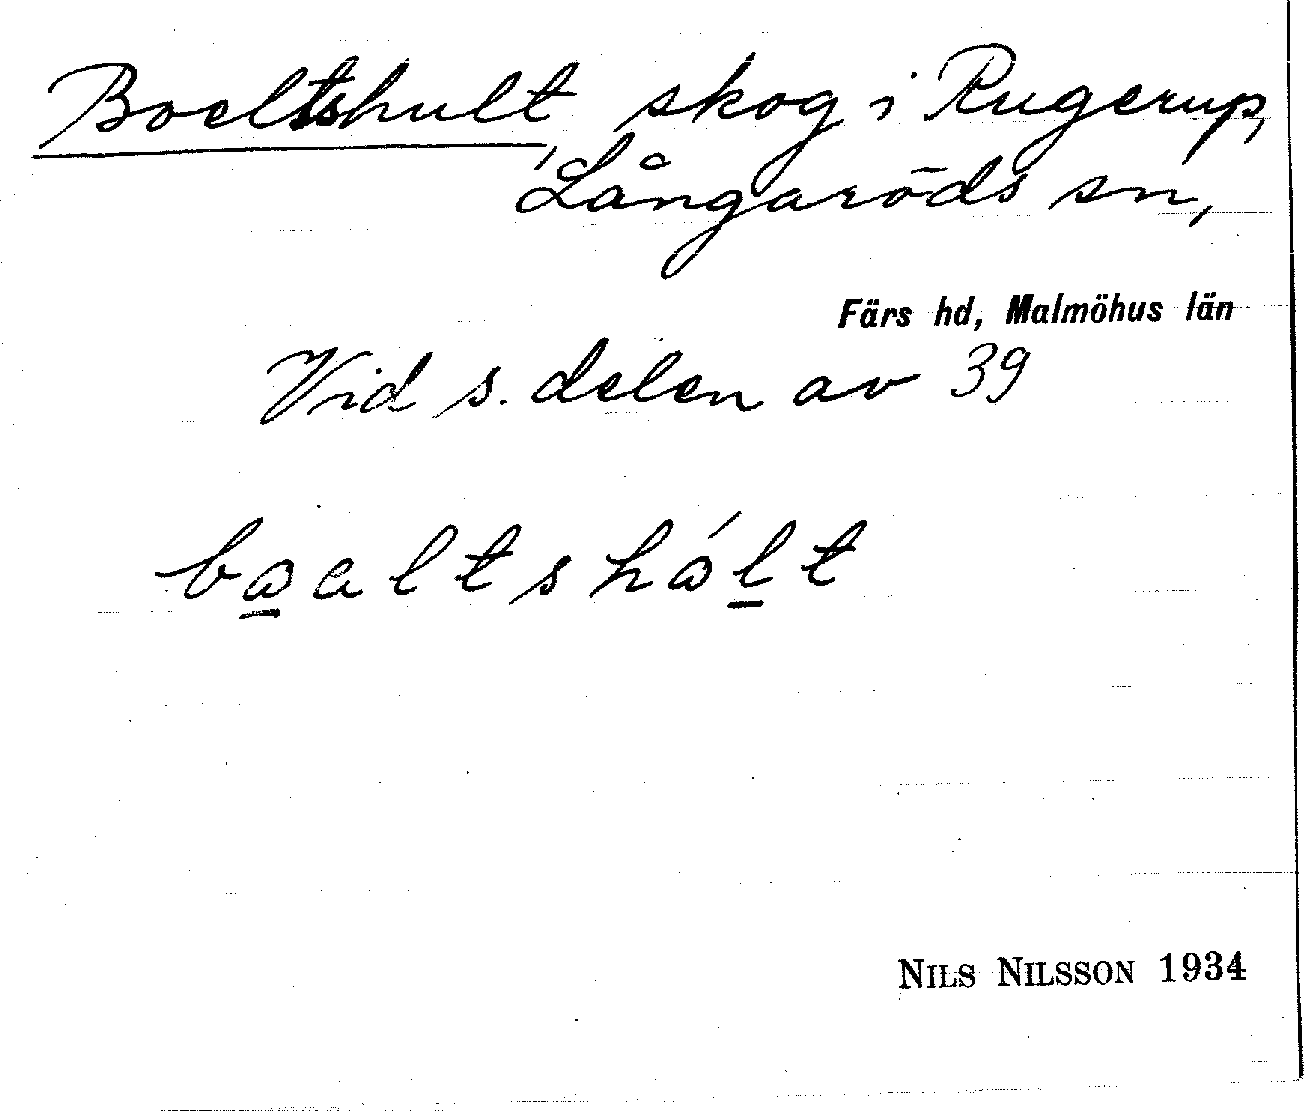 Boeltshult, skog i Rugerup,
Långaröds sn,
Färs hd, Malmöhus län
Vid s. delen av 39
NILS NILSSON 1934